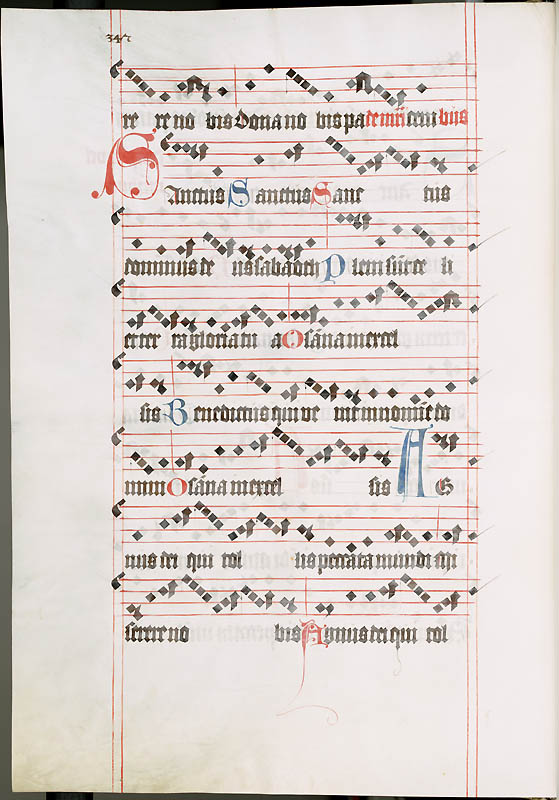 347
re re no bis dona no bis pacem
Sanctus Sanctus Sanc tus
dominus de us sabaoth Pleni sunt ce li
et ter ra gloria tu a Osãna in excel
sis Benedictus qui ve nit in nomine do
mini Osãna in excel sis A G
nus dei qui tol lis peccata mundi mi
serere no bis Agnus dei qui tol